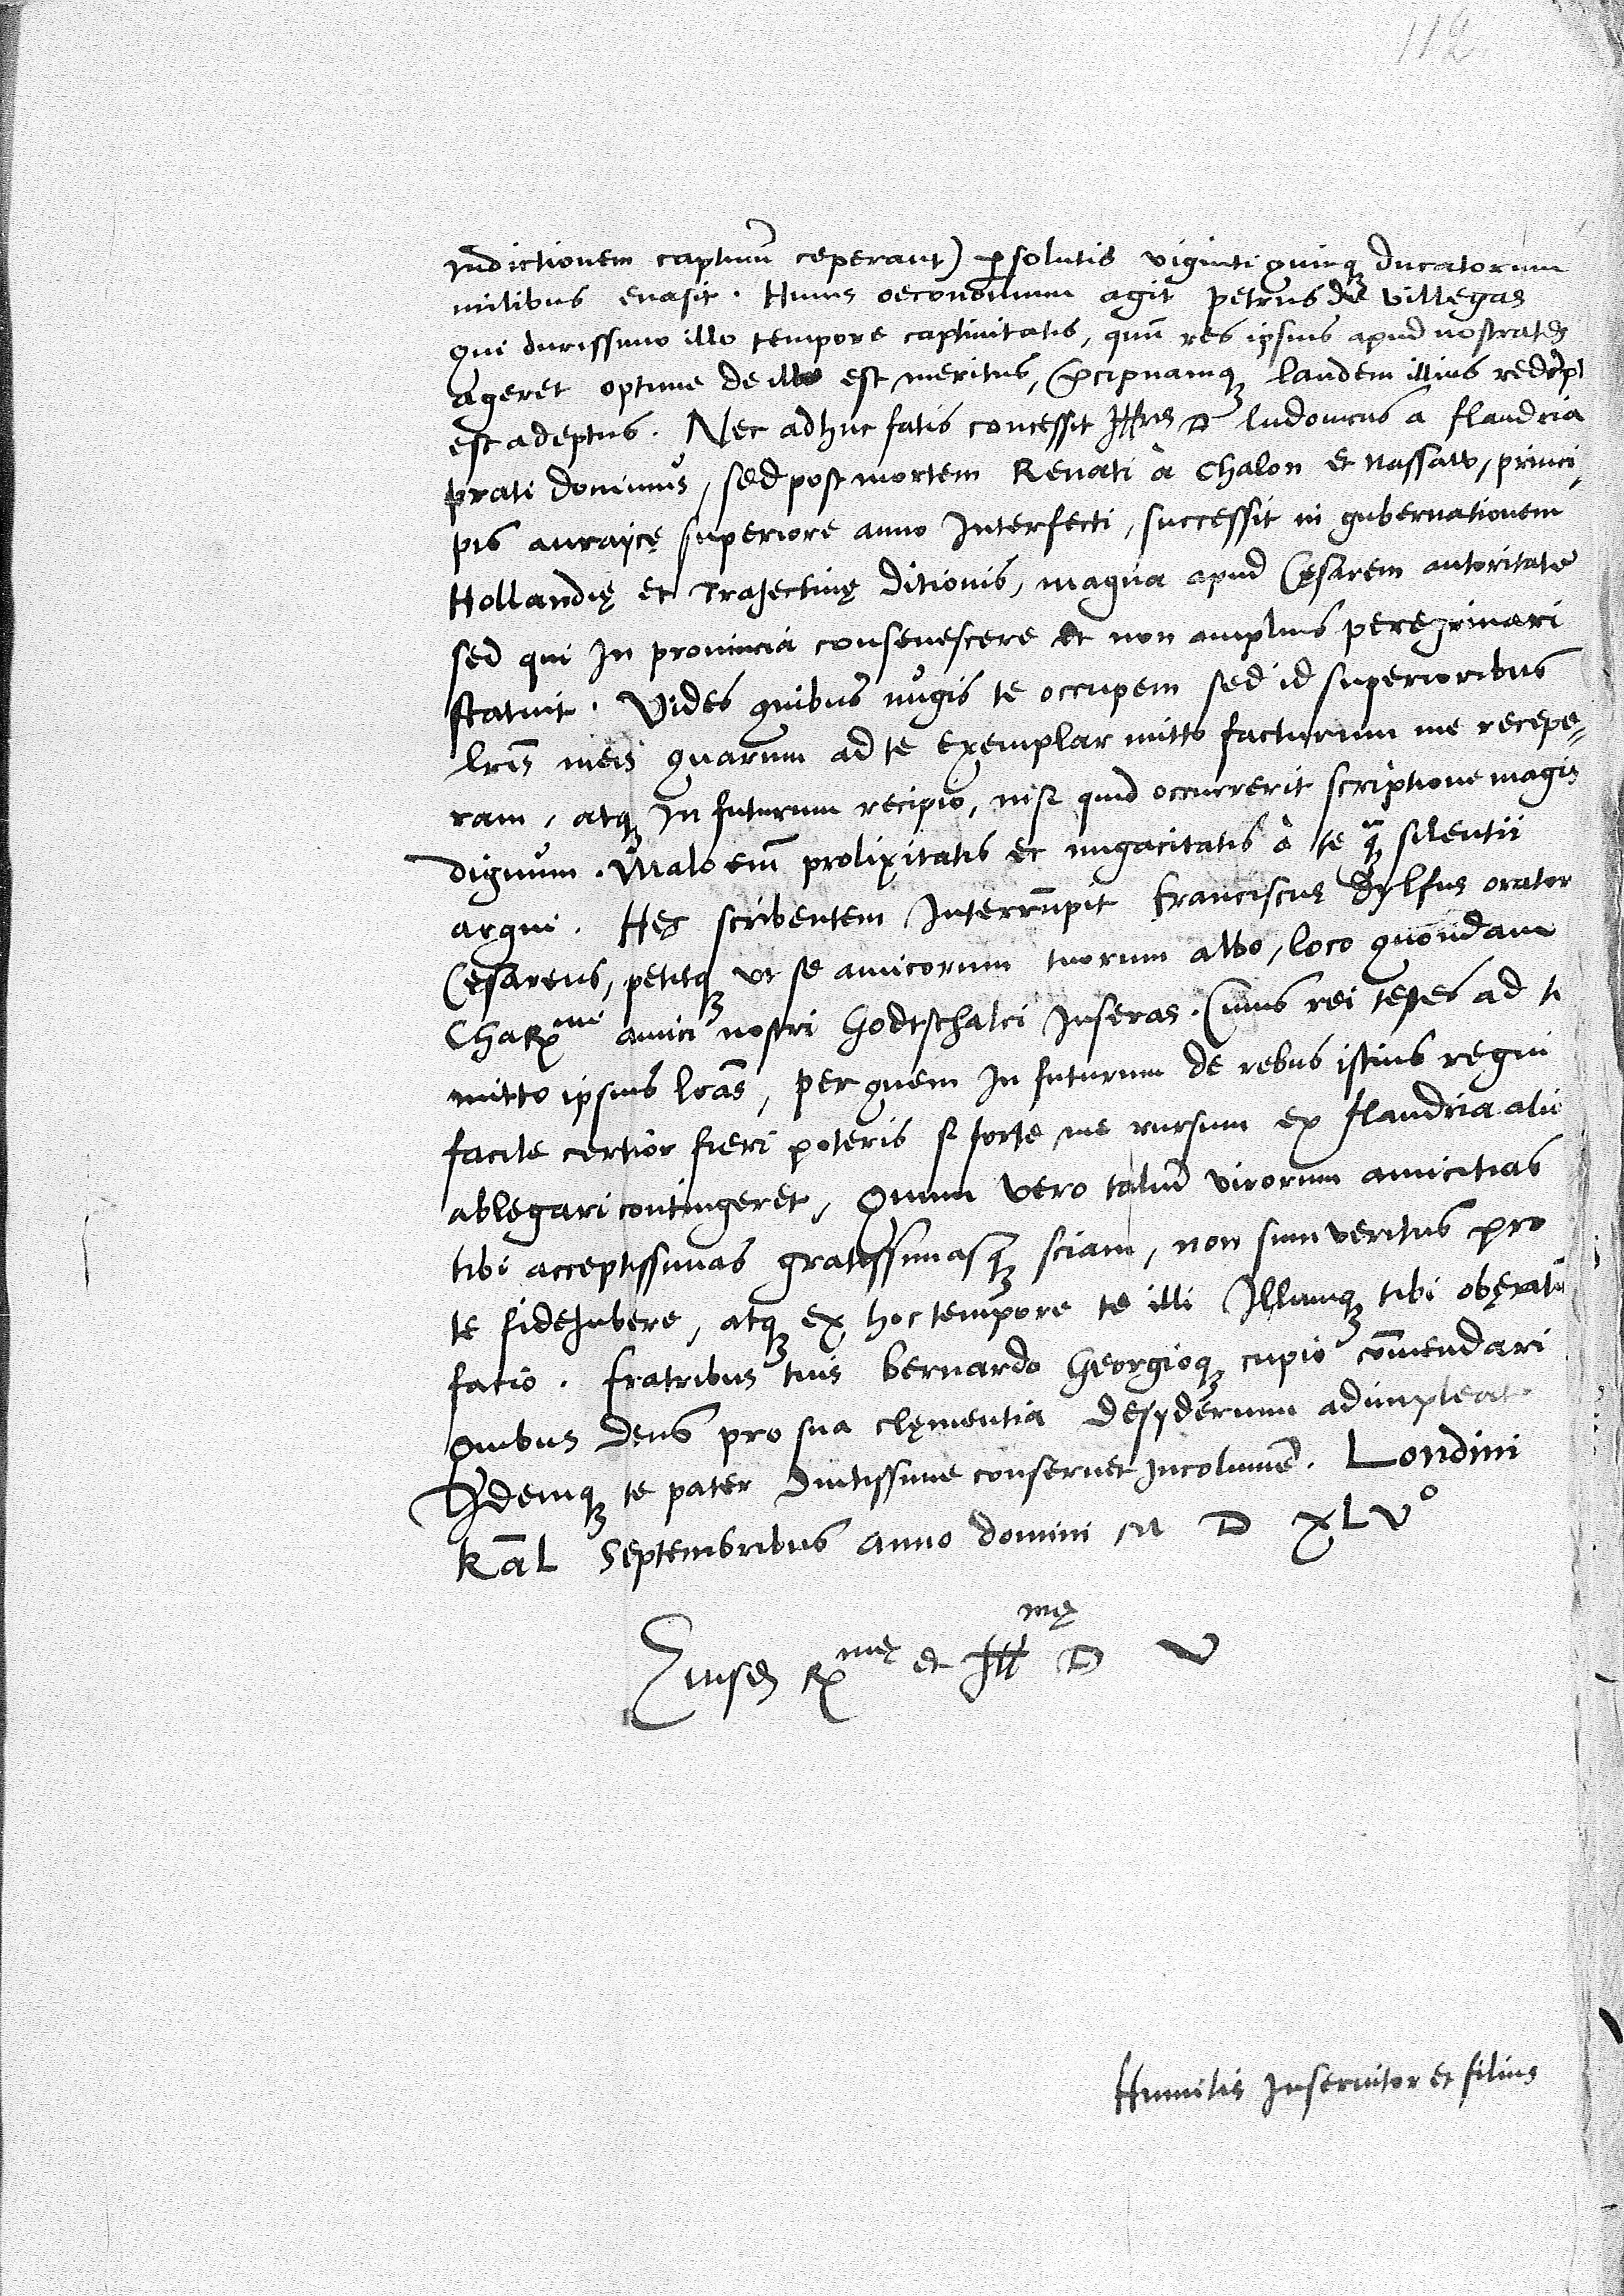 112
Indictionem captiuũ ceperant) ꝑsolutis viginti quinqꝫ ducatorum
milibus euasit. Huius oeconomum agit petrus de villegas
qui durissimo illo tempore captiuitatis, quũ res ipsius apud nostrates
ageret optime de illo est meritus, p̃cipuamqꝫ laudem illius
est adeptus. Nec adhuc fatis concessit Illris D ludouicus a flandria
prati dominus, sed post mortem Renati à Chalon et Nassaw, princi,
pis auraycę superiore anno Interfecti, successit in gubernationem
Hollandię et Traiectinę ditionis, magna apud Cęsarem autoritate
sed qui In prouincia consenescere et non amplius peregrinari
statuit. Vides quibus nugis te occupem sed id superioribus
lr̃is meis quarum ad te exemplar mitto facturum me recepe=
ram, atqꝫ In futurum recipio, nisi quid occurrerit scriptione magis
dignum. Malo em̃ prolixitatis et nugacitatis à te q̃ꝫ silentii
argui. Hęc scribentem Interrũpit Franciscus Dylfus orator
Cęsareus, petitqꝫ vt se amicorum tuorum albo, loco quondam
Chariss.mi amici nostri Godtschalci Inseras. Cuius rei testes ad te
mitto ipsius lr̃as, per quem In futurum de rebus istius regni
facile certior fieri poteris si forte me rursum ex flandria alio
ablegari contingeret, Quum vero taliũ virorum amicitias
tibi acceptissimas gratissimasqꝫ sciam, non sum veritus pro
te fideIubere, atqꝫ ex hoc tempore te illi Illumqꝫ tibi obęratũ
facio. fratribus tuis Bernardo Georgioqꝫ cupio cõmendari
Quibus deus pro sua clęmentia desyderium adimpleat
Idemqꝫ te pater diutissime conseruet Incolumẽ. Londini
Kãl Septembribus anno domini M D XLV°
Eiusd R.mę et Ill.mę D V
Humilis Inseruitor et filius